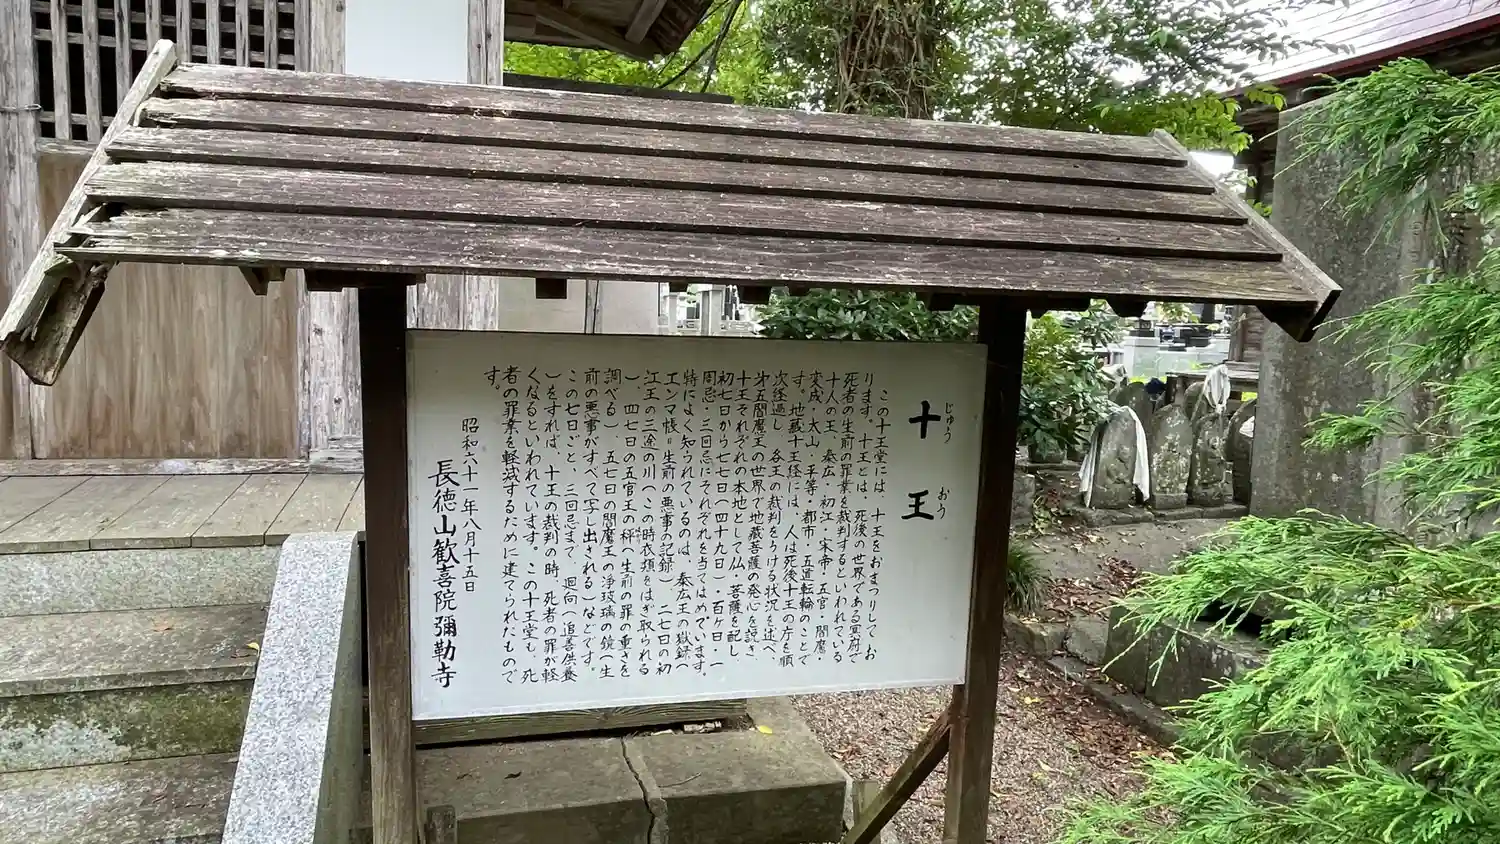 十王
じゅう おう
この十王堂には、十王をおまつりしてお
ります。十王とは、死後の世界である冥府で
死者の生前の罪業を裁判するといわれている
十人の王、秦広・初江・宋帝・五官・閻魔・
変成・太山・平等・都市・五道転輪のことで
す。地蔵十王経には、人は死後十王の庁を順
次経過し、各王の裁判をうける状況を述べ、
第五閻魔王の世界で地蔵菩薩の発心を説き、
十王それぞれの本地として仏・菩薩を配し、
初七日から七七日(四十九日)・百ヶ日・一
周忌・三回忌にそれぞれを当てはめています。
特によく知られているのは、秦広王の獄録(
エンマ帳=生前の悪事の記録)、二七日の初
江王の三途の川(この時衣類をはぎ取られる
)、四七日の五官王の秤(生前の罪の重さを
調べる)、五七日の閻魔王の浄玻璃の鏡(生
前の悪事がすべて写し出される)などです。
この七日ごと、三回忌まで、迴向(追善供養
)をすれば、十王の裁判の時、死者の罪が軽
くなるといわれています。この十王堂も、死
者の罪業を軽減するために建てられたもので
す。
昭和六十一年八月十五日
長徳山歓喜院彌勒寺